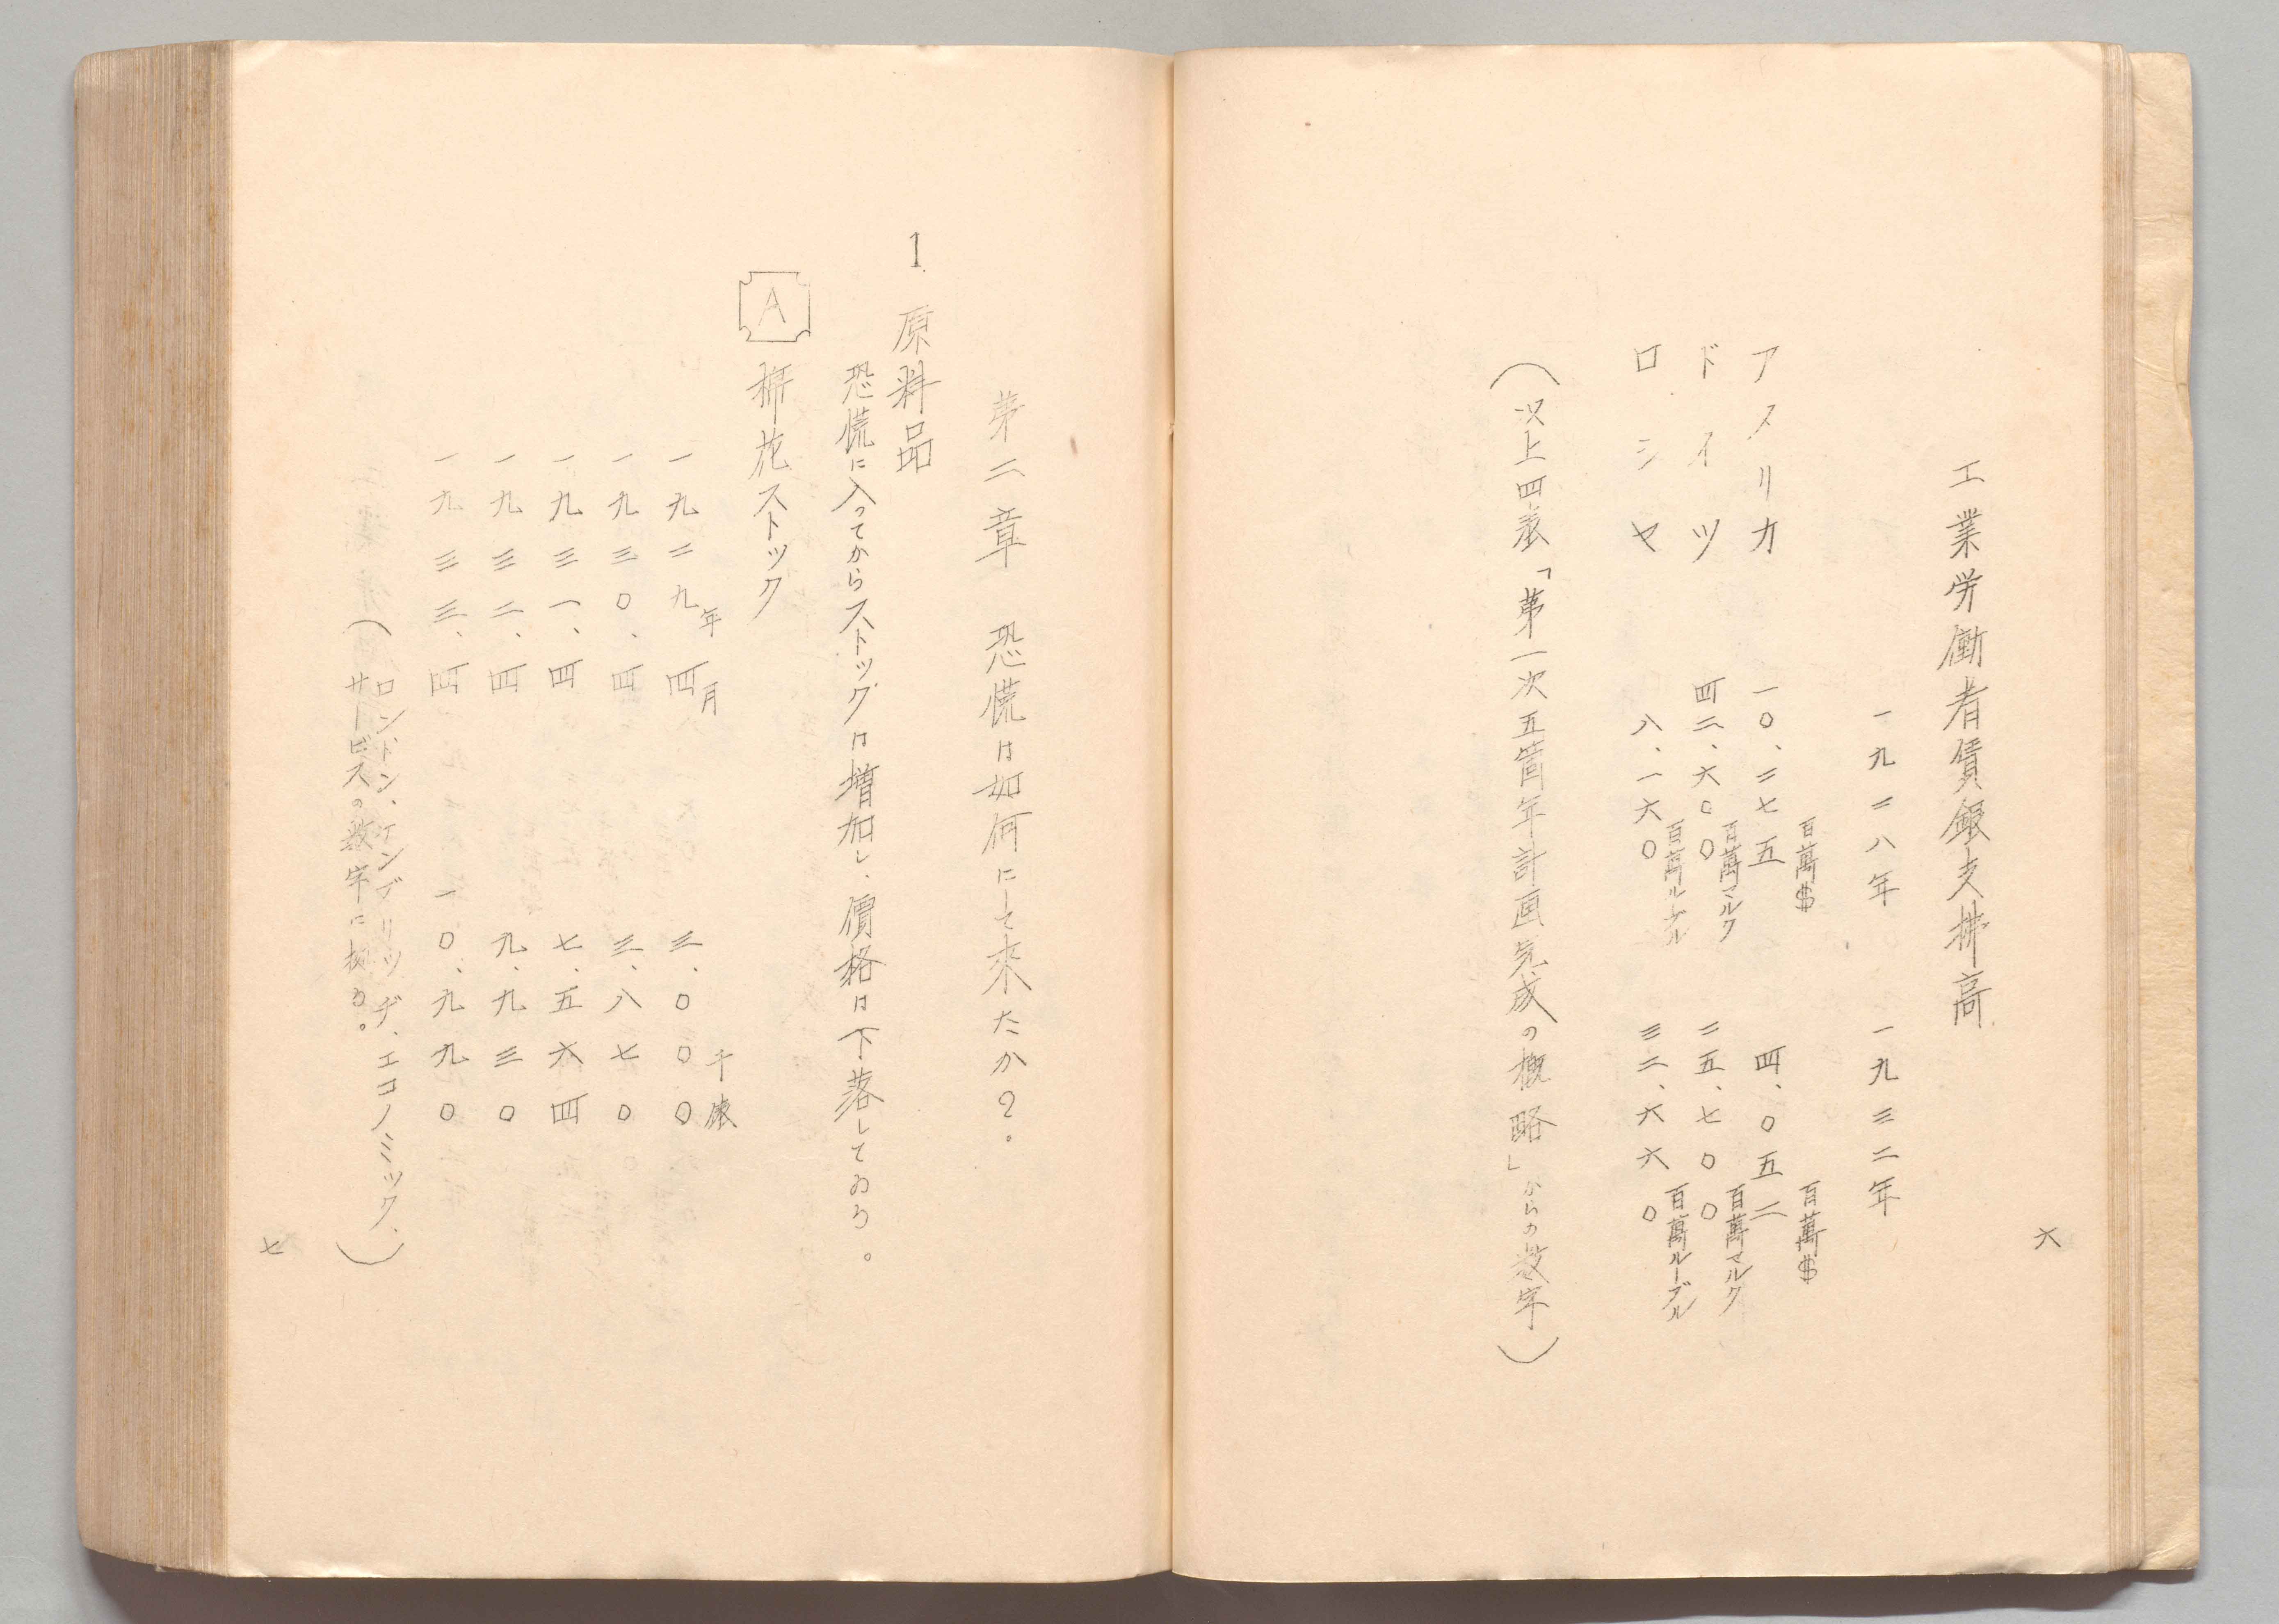 六
工業労働者賃銀支拂高
一九二八年 一九三二年
アメリカ 一〇、二七五百萬$ 四、〇五二百萬$
ドイツ 四二、六〇〇百萬マルク 二五、七〇〇百萬マルク
ロシヤ 八、一六〇百萬ルーブル 三二、六六〇百萬ルーブル
(以上四表「第一次五箇年計画完成の概略」からの数字)
第二章 恐慌は如何にして來たか?。
1. 原料品
恐慌に入ってからストックは増加し、價格は下落してゐる。
A 棉花ストック
一九二九年四月 三、〇〇〇千俵
一九三〇、四 三、八七〇
一九三一、四 七、五六四
一九三二、四 九、九三〇
一九三三、四 一〇、九九〇
(ロンドン、ケンブリッヂ、エコノミック、
サービスの数字に拠る。)
七